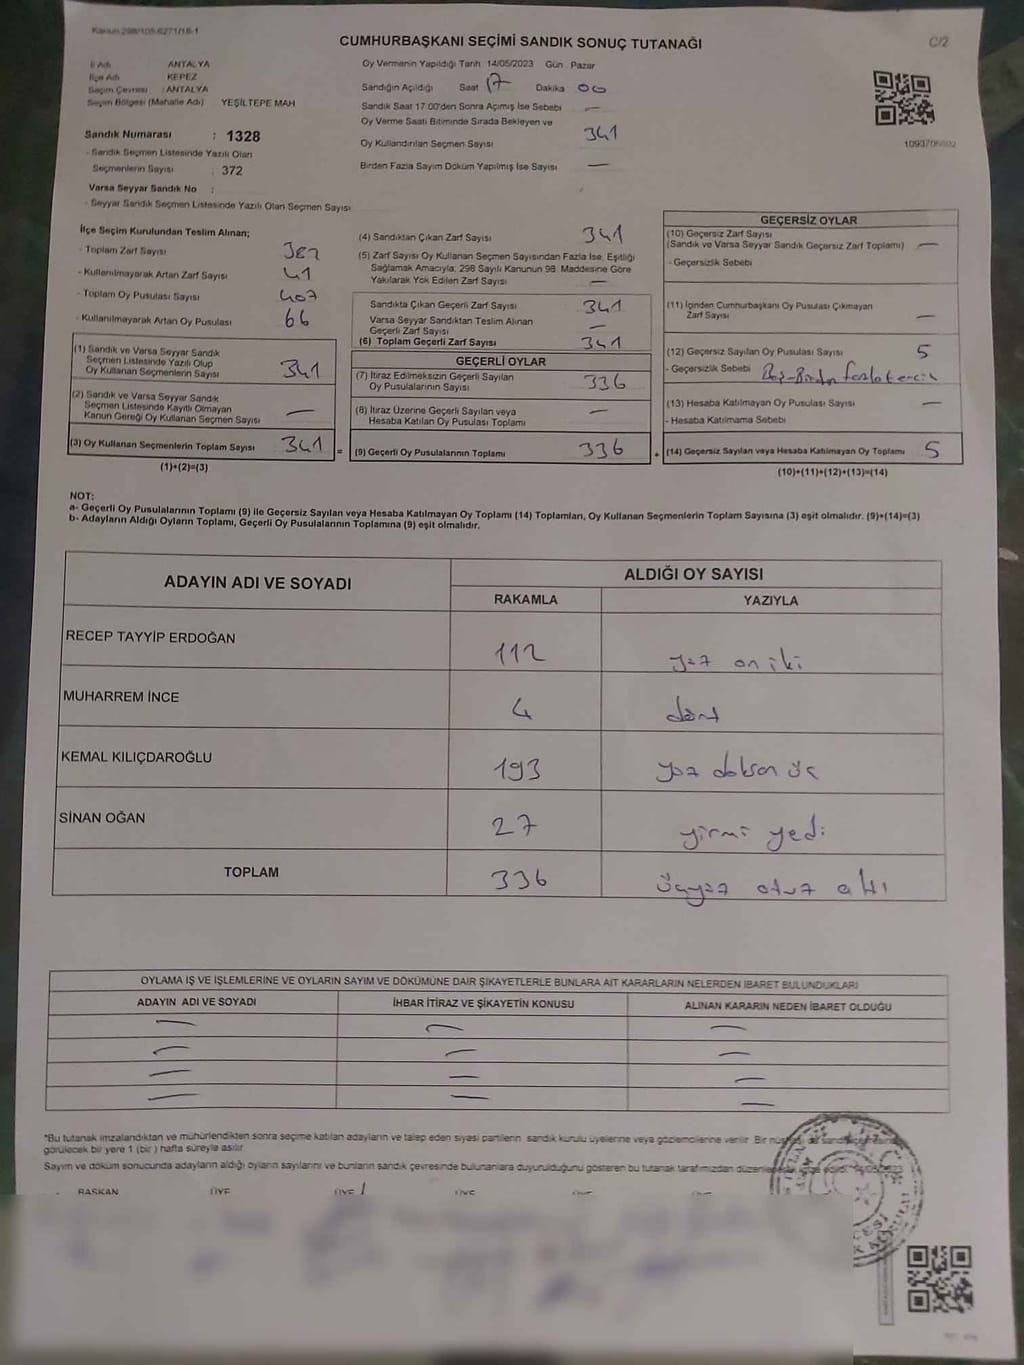 Kanun 298/105-6271/18-1
CUMHURBAŞKANI SEÇİMİ SANDIK SONUÇ TUTANAĞI
C/2
İl Adı ANTALYA
İlçe Adı KEPEZ
Seçim Çevresi : ANTALYA
Seçim Bölgesi (Mahalle Adı) YEŞİLTEPE MAH
Sandık Numarası : 1328
- Sandık Seçmen Listesinde Yazılı Olan
Seçmenlerin Sayısı : 372
Varsa Seyyar Sandık No :
- Seyyar Sandık Seçmen Listesinde Yazılı Olan Seçmen Sayısı
Oy Vermenin Yapıldığı Tarih 14/05/2023 Gün Pazar
Sandığın Açıldığı Saat 17 Dakika 00
Sandık Saat 17:00'den Sonra Açımış İse Sebebi —
Oy Verme Saati Bitiminde Sırada Bekleyen ve
Oy Kullandırılan Seçmen Sayısı 341
Birden Fazla Sayım Döküm Yapılmış İse Sayısı —
İlçe Seçim Kurulundan Teslim Alınan;
- Toplam Zarf Sayısı 382
- Kullanılmayarak Artan Zarf Sayısı 41
- Toplam Oy Pusulası Sayısı 407
- Kullanılmayarak Artan Oy Pusulası 66
(1) Sandık ve Varsa Seyyar Sandık
Seçmen Listesinde Yazılı Olup
Oy Kullanan Seçmenlerin Sayısı 341
(2) Sandık ve Varsa Seyyar Sandık
Seçmen Listesinde Kayıtlı Olmayan
Kanun Gereği Oy Kullanan Seçmen Sayısı —
(3) Oy Kullanan Seçmenlerin Toplam Sayısı 341 =
(1)+(2)=(3)
(4) Sandıktan Çıkan Zarf Sayısı 341
(5) Zarf Sayısı Oy Kullanan Seçmen Sayısından Fazla İse, Eşitliği
Sağlamak Amacıyla; 298 Sayılı Kanunun 98. Maddesine Göre
Yakılarak Yok Edilen Zarf Sayısı —
Sandıkta Çıkan Geçerli Zarf Sayısı 341
Varsa Seyyar Sandıktan Teslim Alınan
Geçerli Zarf Sayısı —
(6) Toplam Geçerli Zarf Sayısı 341
GEÇERLİ OYLAR
(7) İtiraz Edilmeksizin Geçerli Sayılan
Oy Pusulalarının Sayısı 336
(8) İtiraz Üzerine Geçerli Sayılan veya
Hesaba Katılan Oy Pusulası Toplamı —
(9) Geçerli Oy Pusulalarının Toplamı 336 +
GEÇERSİZ OYLAR
(10) Geçersiz Zarf Sayısı
(Sandık ve Varsa Seyyar Sandık Geçersiz Zarf Toplamı) —
- Geçersizlik Sebebi
(11) İçinden Cumhurbaşkanı Oy Pusulası Çıkmayan
Zarf Sayısı —
(12) Geçersiz Sayılan Oy Pusulası Sayısı 5
- Geçersizlik Sebebi Boş-Birden fazla tercih
(13) Hesaba Katılmayan Oy Pusulası Sayısı —
- Hesaba Katılmama Sebebi
(14) Geçersiz Sayılan veya Hesaba Katılmayan Oy Toplamı 5
(10)+(11)+(12)+(13)=(14)
NOT:
a- Geçerli Oy Pusulalarının Toplamı (9) ile Geçersiz Sayılan veya Hesaba Katılmayan Oy Toplamı (14) Toplamları, Oy Kullanan Seçmenlerin Toplam Sayısına (3) eşit olmalıdır. (9)+(14)=(3)
b- Adayların Aldığı Oyların Toplamı, Geçerli Oy Pusulalarının Toplamına (9) eşit olmalıdır.
ADAYIN ADI VE SOYADI
ALDIĞI OY SAYISI
RAKAMLA YAZIYLA
RECEP TAYYİP ERDOĞAN 112 yüz on iki
MUHARREM İNCE 4 dört
KEMAL KILIÇDAROĞLU 193 yüz doksan üç
SİNAN OĞAN 27 yirmi yedi
TOPLAM 336 üçyüz otuz altı
OYLAMA İŞ VE İŞLEMLERİNE VE OYLARIN SAYIM VE DÖKÜMÜNE DAİR ŞİKAYETLERLE BUNLARA AİT KARARLARIN NELERDEN İBARET BULUNDUKLARI
ADAYIN ADI VE SOYADI İHBAR İTİRAZ VE ŞİKAYETİN KONUSU ALINAN KARARIN NEDEN İBARET OLDUĞU
— — —
— — —
— — —
— — —
*Bu tutanak imzalandıktan ve mühürlendikten sonra seçime katılan adayların ve talep eden siyasi partilerin sandık kurulu üyelerine veya gözlemcilerine verilir. Bir
görülecek bir yere 1 (bir) hafta süreyle asılır.
Sayım ve döküm sonucunda adayların aldığı oyların sayılarını ve bunların sandık çevresinde bulunanlara duyurulduğunu gösteren bu tutanak tarafımızdan
BAŞKAN ÜYE ÜYE ÜYE